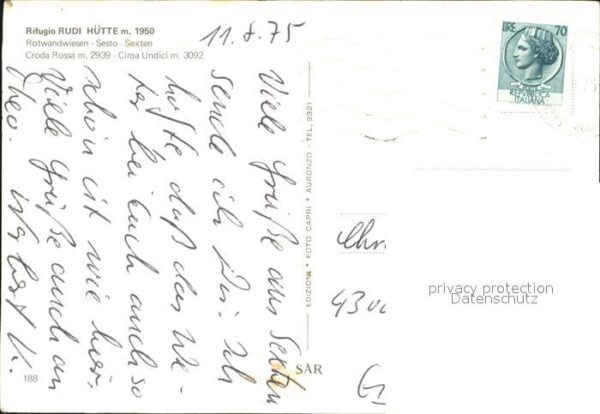 Rifugio RUDI HÜTTE m. 1950
Rotwandwiesen - Sesto - Sexten
Croda Rossa m. 2939 - Cima Undici m. 3092
11.8.75
Viele Grüße aus Sexten
sende ich Dir. Ich
hoffe daß das We-
ter bei Euch auch so
schön ist wie hier.
Viele Grüße auch an
Theo.
188
EDIZIONI * FOTO CAPRI * AURONZO - TEL. 9321
SAR
LIRE 70
REPUBBLICA
ITALIANA
Chr
privacy protection
Datenschutz
4300